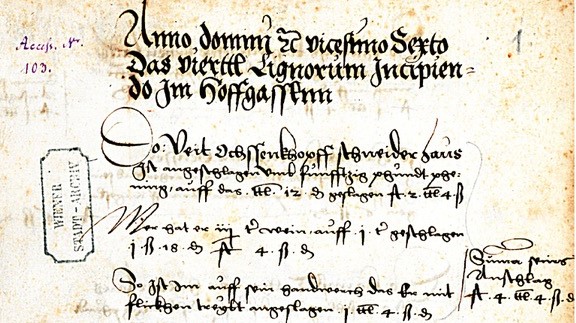 Access. Nr.
103.
1
Anno domini etc vicesimo Sexto
Das vierttl Lignorum Incipien=
do Im Hoffgassenn
WIENER
STADT-ARCHIV
Do: Veit Ochssenkhopff schneider haus
Ist angeschlagen umb funfftzig phundt phe=
nning, auff das 12 d geslagen 2 4 ß
Mer hat er iiij wein, auff 1 geschlagen
1 ß 18 d 4 ß d
So ist Im auff sein handwerch das Er mit
flickhen treybt angeslagen 1 4 ß d
Suma seins
Anschlag
4 4 ß d